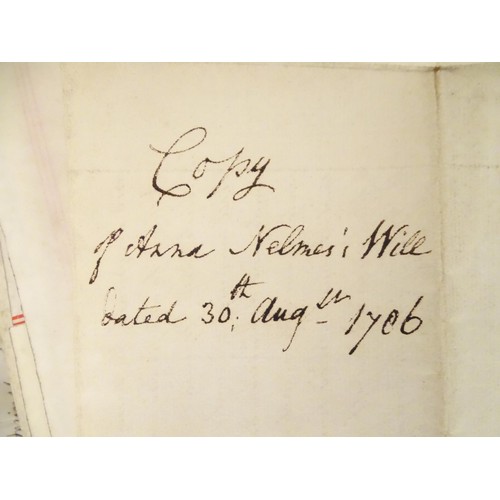 Copy
of Anna Nelmes's Will
dated 30th Augst 1786